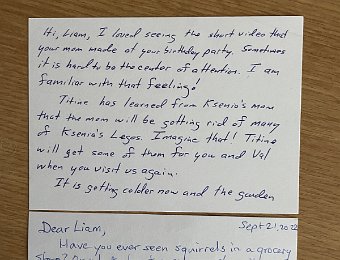 Hi, Liam, I loved seeing the short video that
your mom made at your birthday party. Sometimes
it is hard to be the center of attention. I am
familiar with that feeling!
Titine has learned from Ksenia's mom
that the mom will be getting rid of many
of Ksenia's Legos. Imagine that! Titine
will get some of them for you and Val
when you visit us again.
It is getting colder now and the garden
Dear Liam, Sept 21, 2022
Have you ever seen squirrels in a grocery